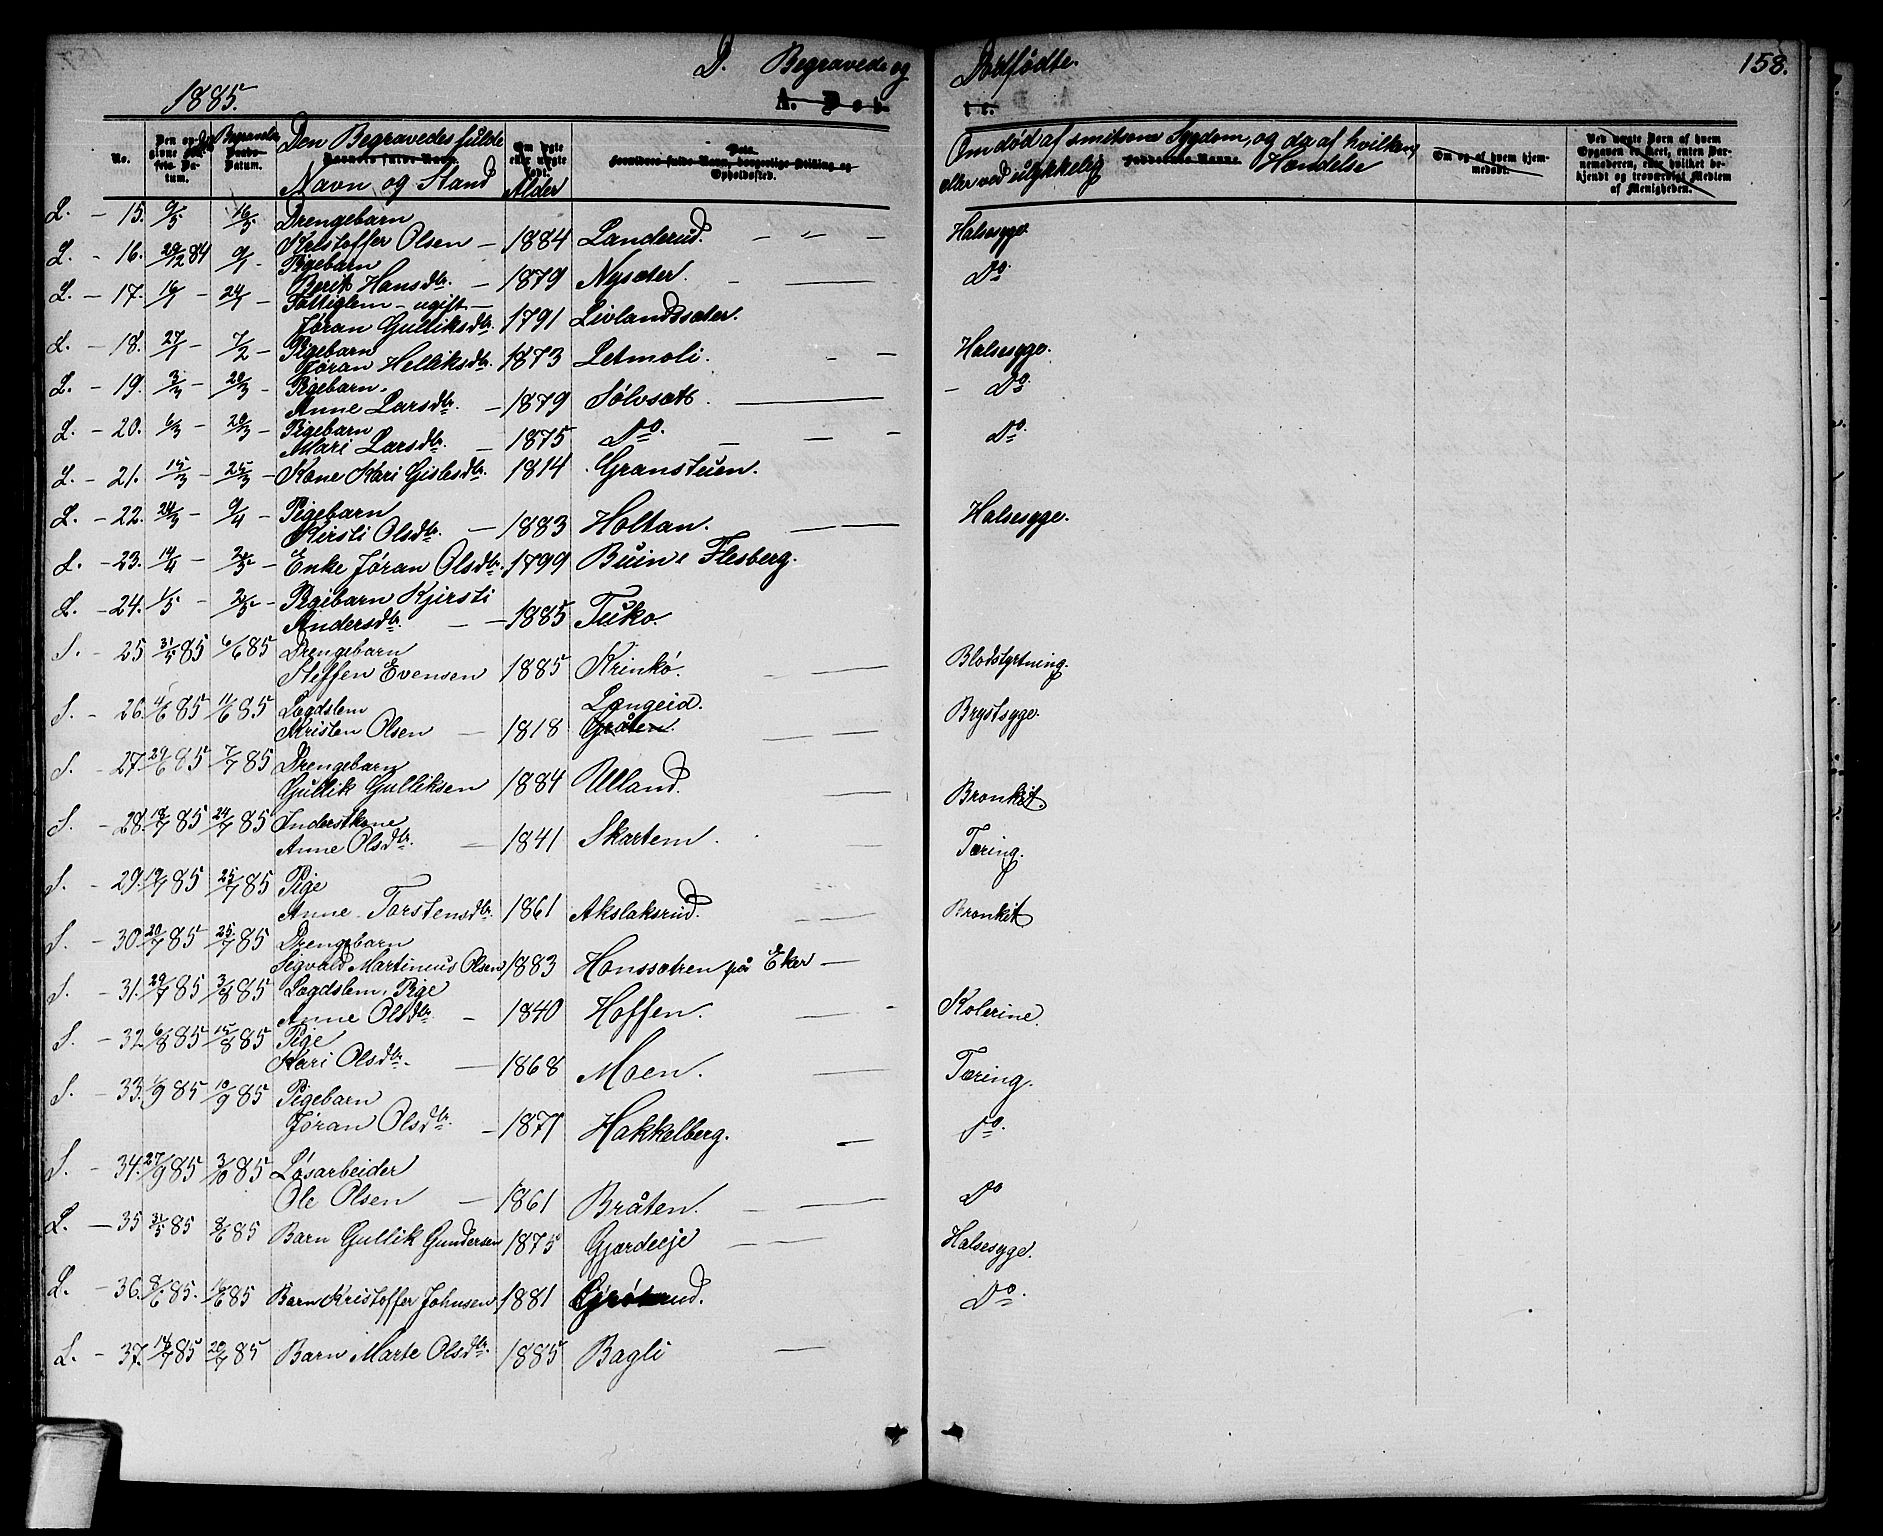 D. Begravede og Dødfødte. 158.
1885.
A. Døb
te.
No.
Døds
Begravelse
Datum.
Den Begravedes fulde
Navn og Stand
Alder
Opholdssted.
Om død af smitsom Sygdom, og da af hvilken,
eller ved ulykkelig Hændelse
Om og af hvem hjem-
medøbt.
Ved uægte Børn af hvem
Opgaven er skeet, enten Bar-
nemoderen, eller hvilket be-
kjendt og troværdigt Medlem
af Menigheden.
L. - 15. 9/5 16/5 Drengebarn
Kristoffer Olsen - 1884 Landerud. - " - Halsesyge.
L. - 16. 29/12 84 9/1 - Pigebarn
Berit Hansdtr. - 1879 Nysæter. Do.
L. - 17. 16/1 - 24/1 - Fattiglem - ugift -
Jøran Gulliksdtr. 1791 Livlandsæter.
L. - 18. 27/1 - 7/2 - Pigebarn
Jøran Helliksdtr. 1873 Letmoli. - - Halsesyge.
L. - 19. 3/3 - 20/3 - Pigebarn.
Anne Larsdtr. - 1879 Sølvsæt. - Do.
L. - 20. 6/3 - 20/3 - Pigebarn
Mari Larsdtr. - 1875 Do. - - - Do.
L. - 21. 15/3 - 25/3 - Kone Kari Gislesdtr. 1814 Granstuen.
L. - 22. 24/3 - 9/4 - Pigebarn
Kirsti Olsdtr. - 1883 Holtan. Halsesyge.
L. - 23. 14/4 - 2/5 - Enke Jøran Olsdtr. 1799 Buin i Flesberg.
L. - 24. 1/5 - 2/5 - Pigebarn Kjirsti
Andersdtr. - - 1885 Tuko.
S. - 25 31/5 85 6/6 85 Drengebarn
Steffen Evensen 1885 Krinkó. Blodstyrtning.
S. - 26. 4/6 85 11/6 85 Lægdslem Langeid.
Kristen Olsen - 1818 Gråten. Brystsyge.
S. - 27. 29/6 85 7/7 85 Drengebarn
Gullik Gulliksen 1884 Ulland. Bronkit.
S. - 28. 18/7 85 24/7 85 Inderstkone
Anne Olsdtr. - 1841 Skartem. Tæring.
S. - 29. 19/7 85 25/7 85 Pige
Anne Torstensdtr. 1861 Akslaksrud. Bronkit
S. - 30. 20/7 85 25/7 85 Drengebarn
Sigvald Martineus Olsen 1883 Honssetren på Eker -
S. - 31. 29/7 85 3/8 85 Lægdslem, Pige
Anne Olsdtr. - 1840 Hoffen. Kolerine.
S. - 32. 6/8 85 15/8 85 Pige
Kari Olsdtr. - 1868 Moen. Tæring.
S. - 33. 1/9 85 10/9 85 Pigebarn
Jøran Olsdtr. - 1871 Hakkelberg. Do.
S. - 34. 27/9 85 3/10 85 Løsarbeider
Ole Olsen - 1861 Bråten. Do
L. - 35 31/5 85 8/6 85 Barn Gullik Gundersen 1875 Gjordeeje Halsesyge.
L. - 36. 8/6 85. 16/6 85 Barn Kristoffer Johnsen 1881 Do.
L. - 37. 18/7 85 20/7 85 Barn Marte Olsdtr. 1885 Bagli